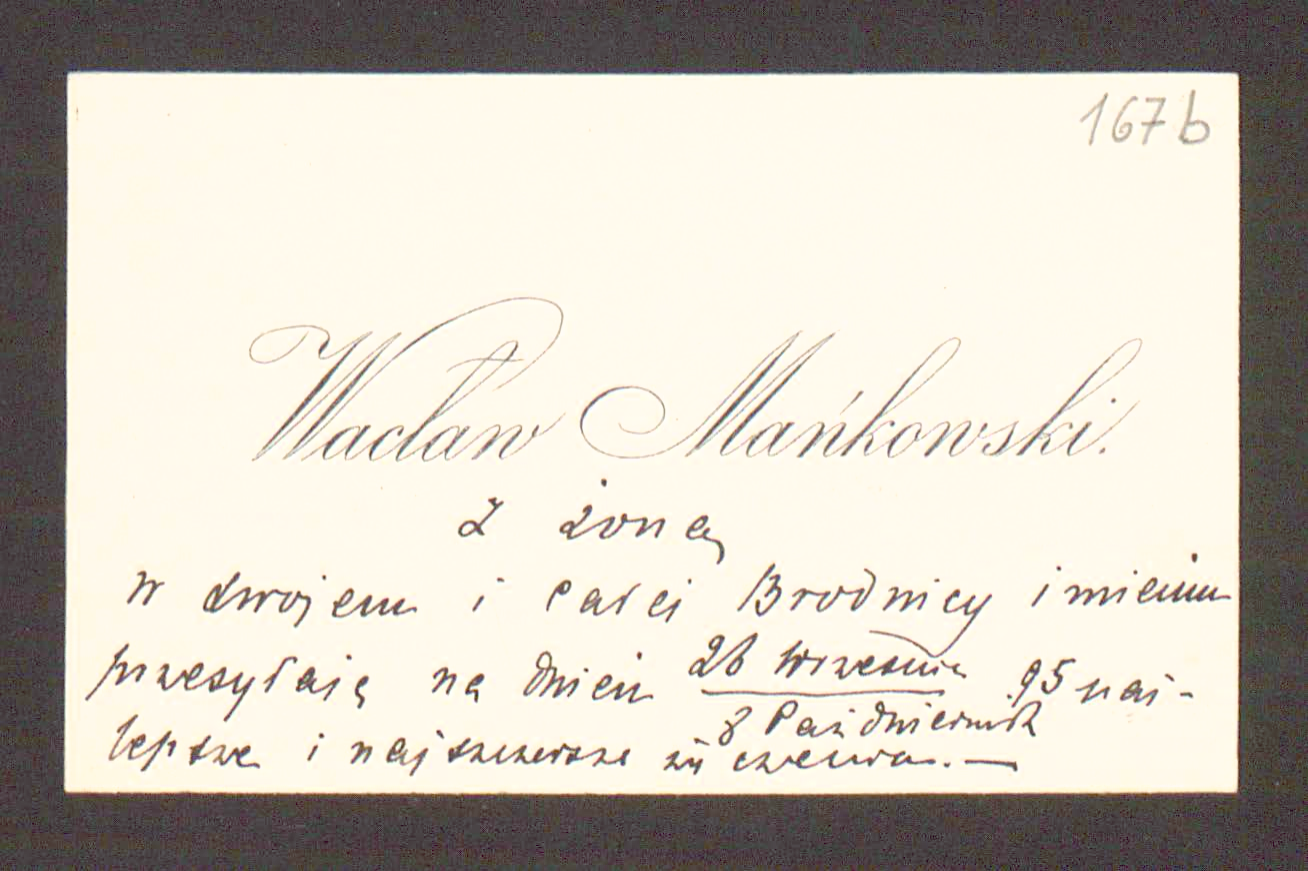 167 b
Wacław Mańkowski.
z żoną
w swojem i całej Brodnicy imieniu
przesyłają na dzień 26 Września 95 naj-
8 Października
lepsze i najszczersze życzenia. —